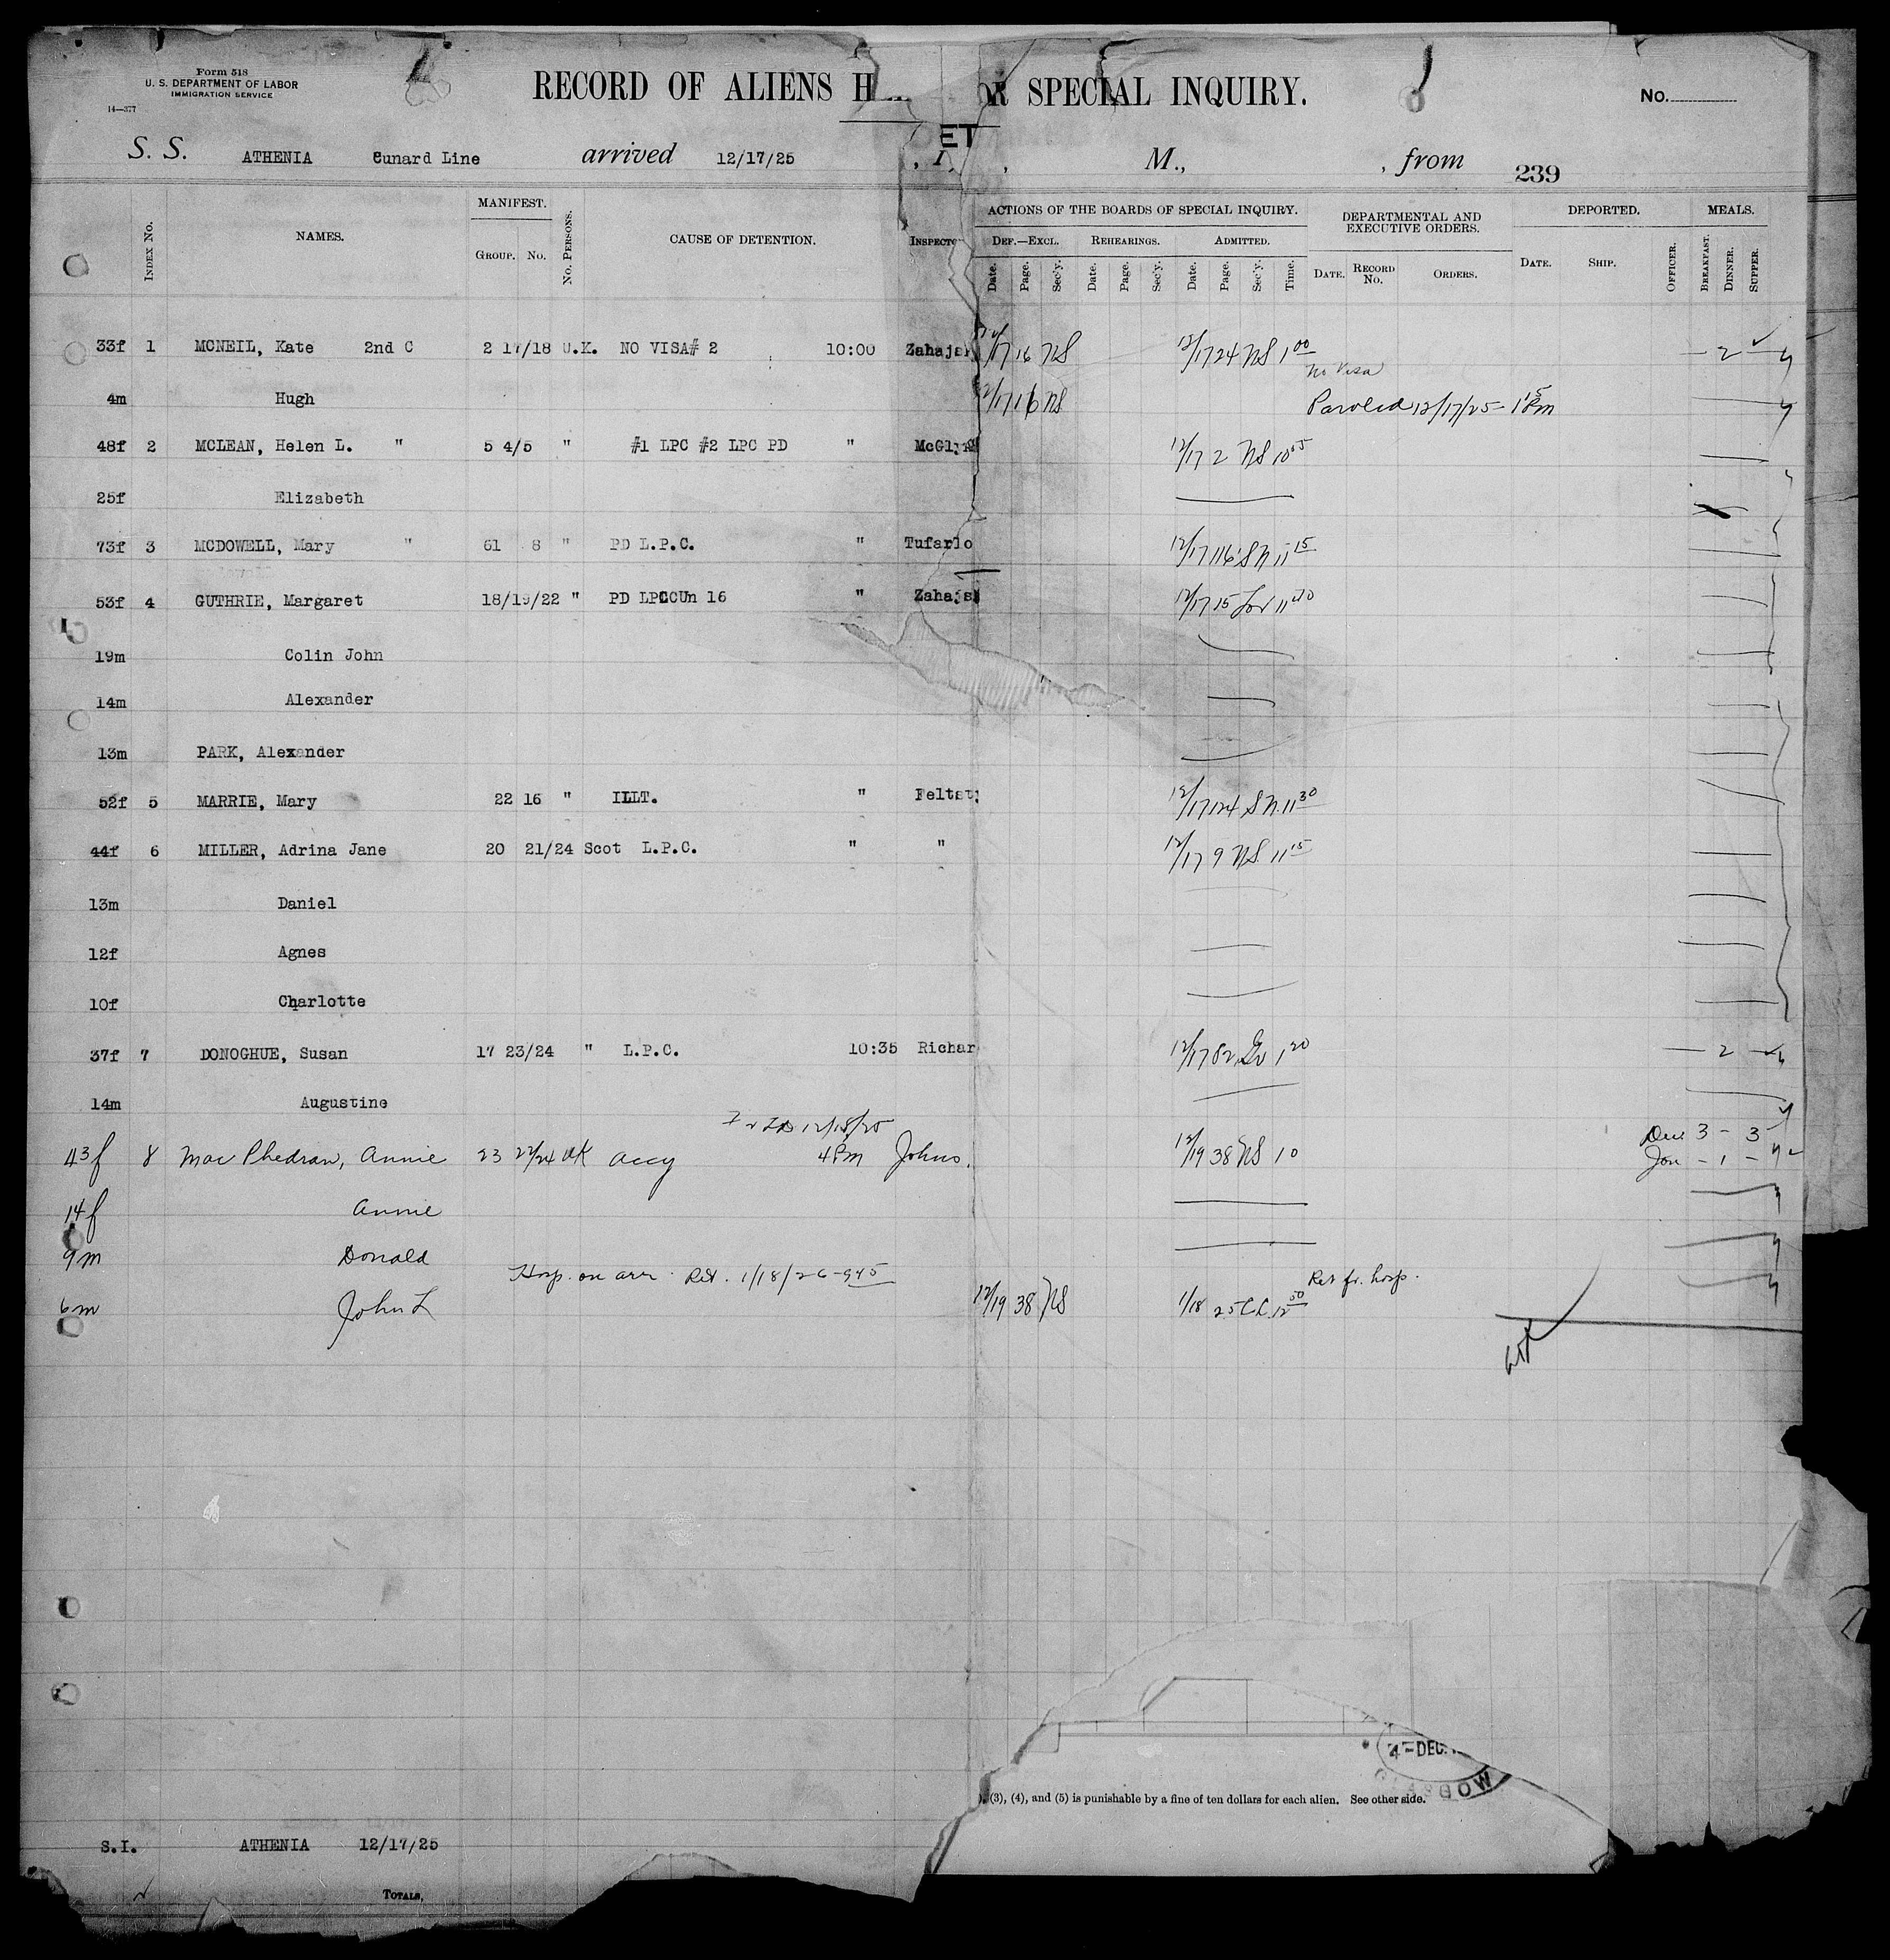 Form 518
U. S. DEPARTMENT OF LABOR
IMMIGRATION SERVICE
14—377
RECORD OF ALIENS H SPECIAL INQUIRY.
No.
ET
S. S. ATHENIA Cunard Line arrived 12/17/25 , M., , from 239
INDEX No. NAMES. MANIFEST. GROUP. No. No. PERSONS. CAUSE OF DETENTION. INSPECTO
ACTIONS OF THE BOARDS OF SPECIAL INQUIRY. DEPARTMENTAL AND EXECUTIVE ORDERS. DEPORTED. MEALS.
DEF.—EXCL. REHEARINGS. ADMITTED.
Date. Page. Sec'y. Date. Page. Sec'y. Date. Page. Sec'y. Time. DATE. RECORD No. ORDERS. DATE. SHIP. OFFICER. BREAKFAST. DINNER. SUPPER.
33f 1 MCNEIL, Kate 2nd C 2 17/18 U.K. NO VISA# 2 10:00 Zahajs 12/17 16 NS 12/17 24 NS 1 00 — 2 —
No Visa
4m Hugh 12/17 16 NS Paroled 12/17/25 - 1 15 PM
48f 2 MCLEAN, Helen L. " 5 4/5 " #1 LPC #2 LPC PD " McGlyn 12/17 2 NS 10 55
25f Elizabeth
73f 3 MCDOWELL, Mary " 61 8 " PD L.P.C. " Tufarlo 12/17 116 SN 11 15
53f 4 GUTHRIE, Margaret 18/19/22 " PD LPCCUn 16 " Zahajs 12/17 15
19m Colin John
14m Alexander
13m PARK, Alexander
52f 5 MARRIE, Mary 22 16 " ILLT. " Felts 12/17 124 SN 11 30
44f 6 MILLER, Adrina Jane 20 21/24 Scot L.P.C. " " 12/17 9 NS 11 15
13m Daniel
12f Agnes
10f Charlotte
37f 7 DONOGHUE, Susan 17 23/24 " L.P.C. 10:35 Richar 12/17 82 1 20 — 2 —
14m Augustine
12/18/25
43f 8 Mac Phedran, Annie 23 22/24 UK Accy 4 PM Johns. 12/19 38 NS 10 Dec 3 - 3
Jan - 1 -
14f Annie
9m Donald
Hosp. on arr. Ret. 1/18/26 - 945 Ret fr. hosp.
6m John L 12/19 38 NS 1/18 25
4-DEC.
GLASGOW
), (3), (4), and (5) is punishable by a fine of ten dollars for each alien. See other side.
S.I. ATHENIA 12/17/25
TOTALS,